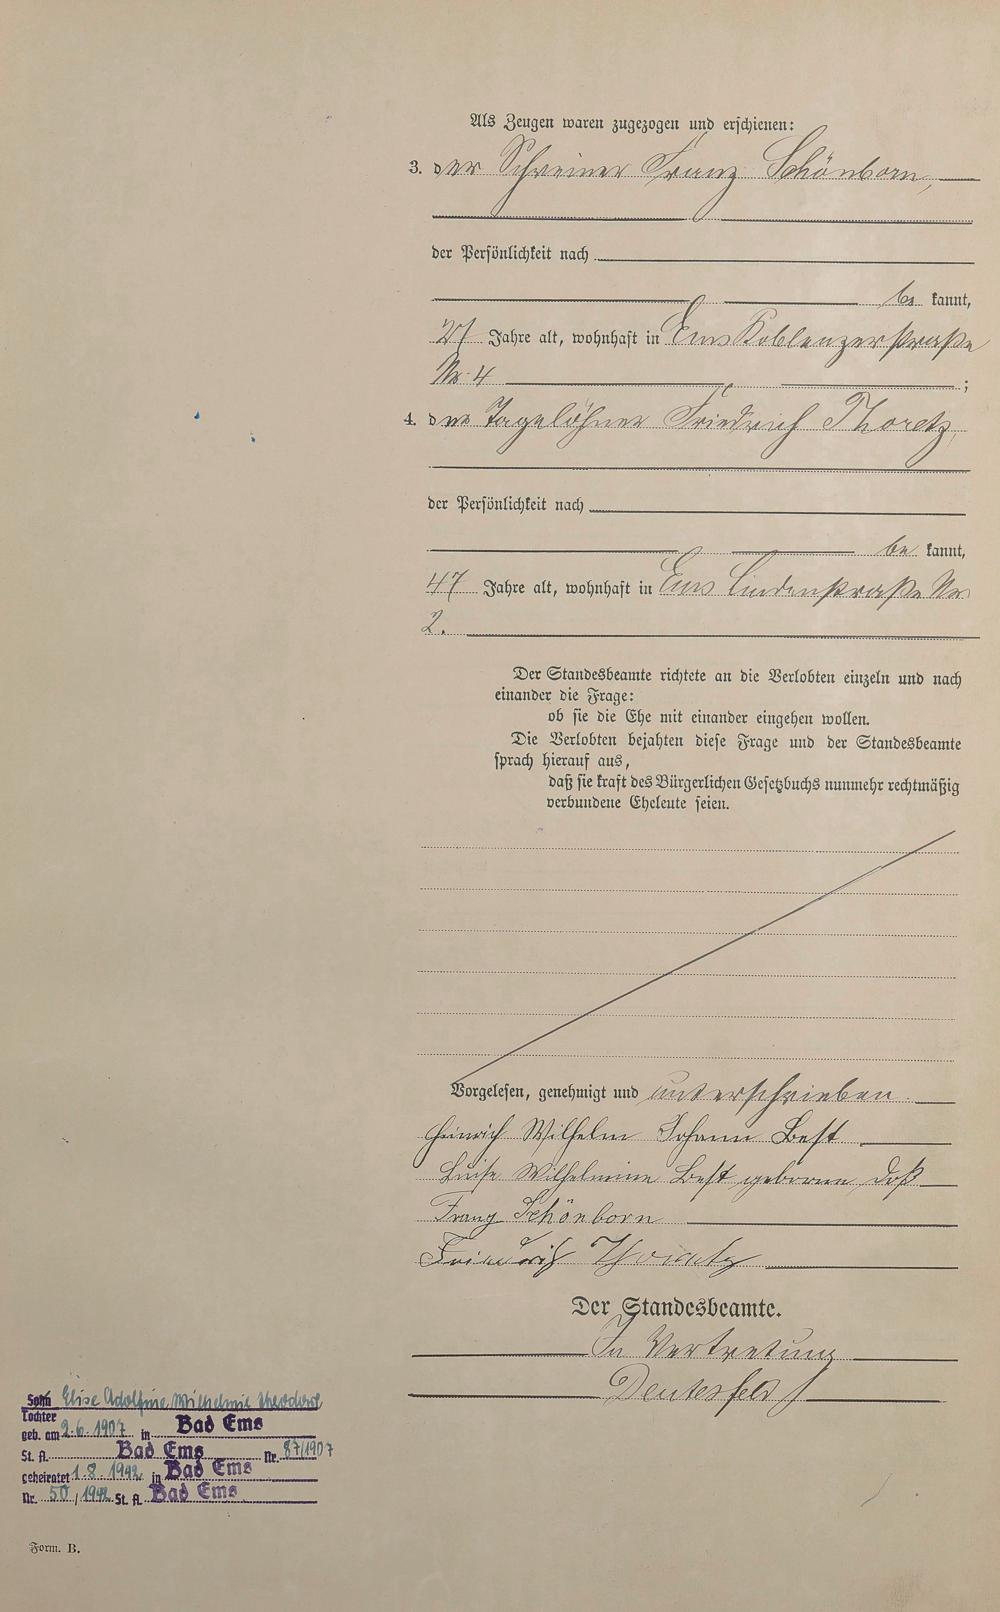 Als Zeugen waren zugezogen und erschienen:
3. der Schreiner Franz Schönborn,
der Persönlichkeit nach
be kannt,
27 Jahre alt, wohnhaft in Ems Koblenzerstraße
Nr. 4 ;
4. der Tagelöhner Friedrich Thoretz,
der Persönlichkeit nach
be kannt,
47 Jahre alt, wohnhaft in Ems Lindenstraße Nr.
2.
Der Standesbeamte richtete an die Verlobten einzeln und nach
einander die Frage:
ob sie die Ehe mit einander eingehen wollen.
Die Verlobten bejahten diese Frage und der Standesbeamte
sprach hierauf aus,
daß sie kraft des Bürgerlichen Gesetzbuchs nunmehr rechtmäßig
verbundene Eheleute seien.
Vorgelesen, genehmigt und unterschrieben.
Heinrich Wilhelm Johann Best
Luise Wilhelmine Best geborene
Franz Schönborn
Friedrich
Der Standesbeamte.
In Vertretung
Sohn Elise Adolfine Wilhelmine
Tochter
geb. am 2.6.1907 in Bad Ems
St. A. Bad Ems Nr. 87/1907
geheiratet 1.8.1942 in Bad Ems
Nr. 50/1942 St. A. Bad Ems
Form. B.